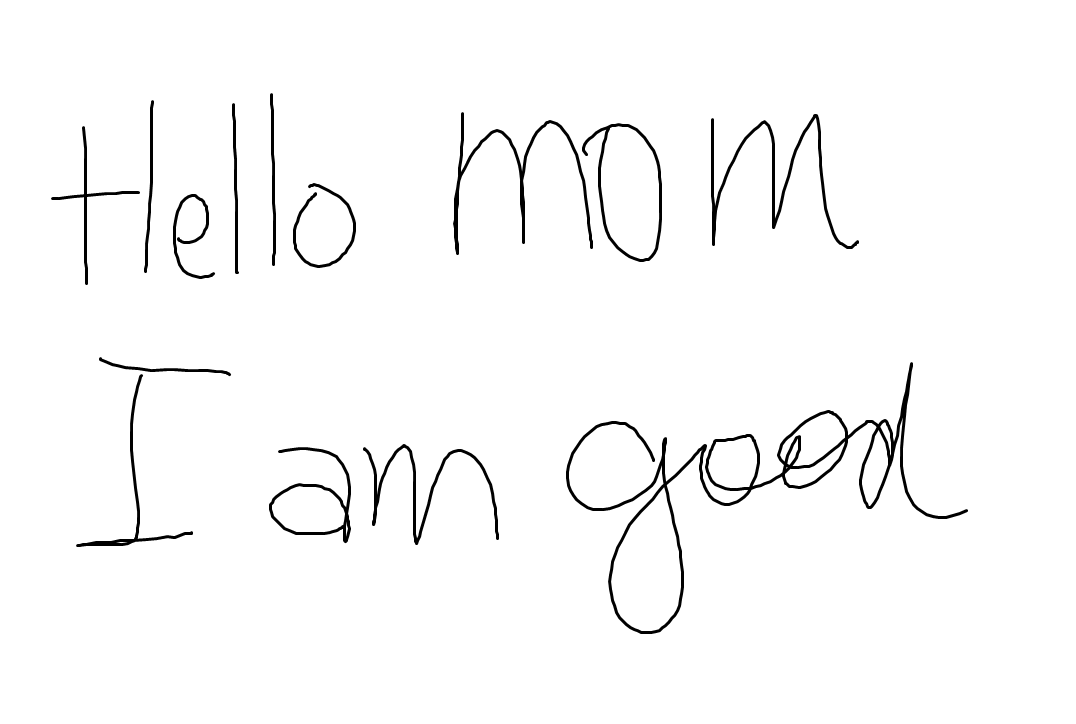 Hello mom
I am good